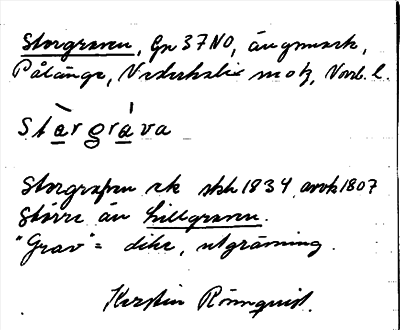 Storgraven, Gp 37 NO, ängsmark,
Pålänge, Nederkalix sn o tg, Norrb. l.
stàrgràva
Storgrafven ek skh 1834, avvk 1807
Större än Lillgraven.
"Grav" = dike, utgrävning.
Kerstin Rönnquist.